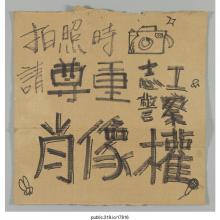 拍照時
請尊重志工
警察
肖像權
public.318.io/17816